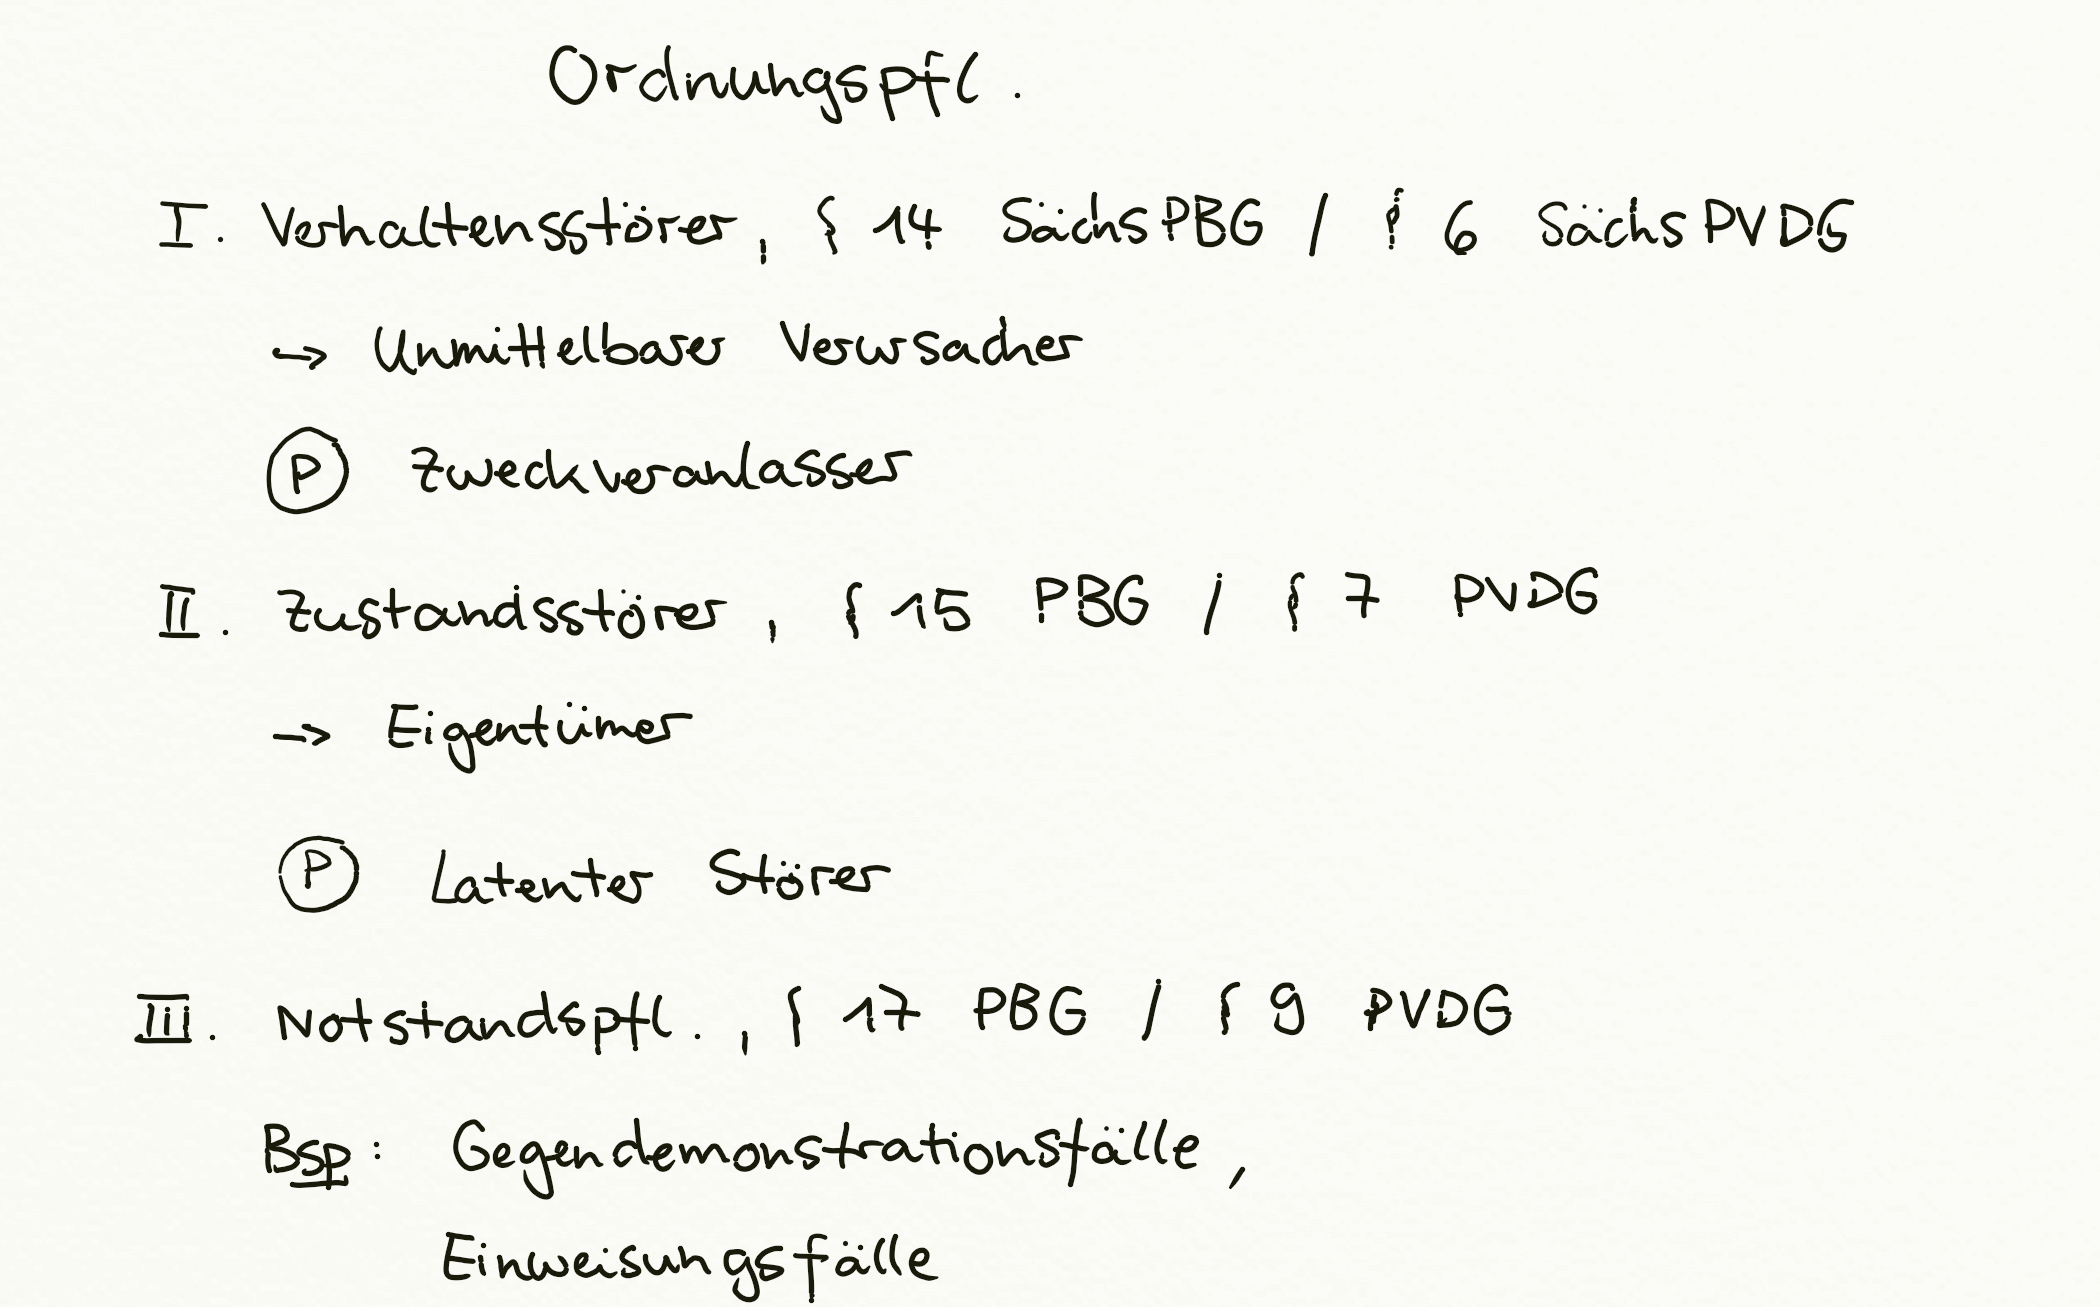 Ordnungspfl.
I. Verhaltensstörer, § 14 SächsPBG / § 6 SächsPVDG
→ Unmittelbarer Verursacher
Ⓟ Zweckveranlasser
II. Zustandsstörer, § 15 PBG / § 7 PVDG
→ Eigentümer
Ⓟ Latenter Störer
III. Notstandspfl., § 17 PBG / § 9 PVDG
Bsp: Gegendemonstrationsfälle,
Einweisungsfälle